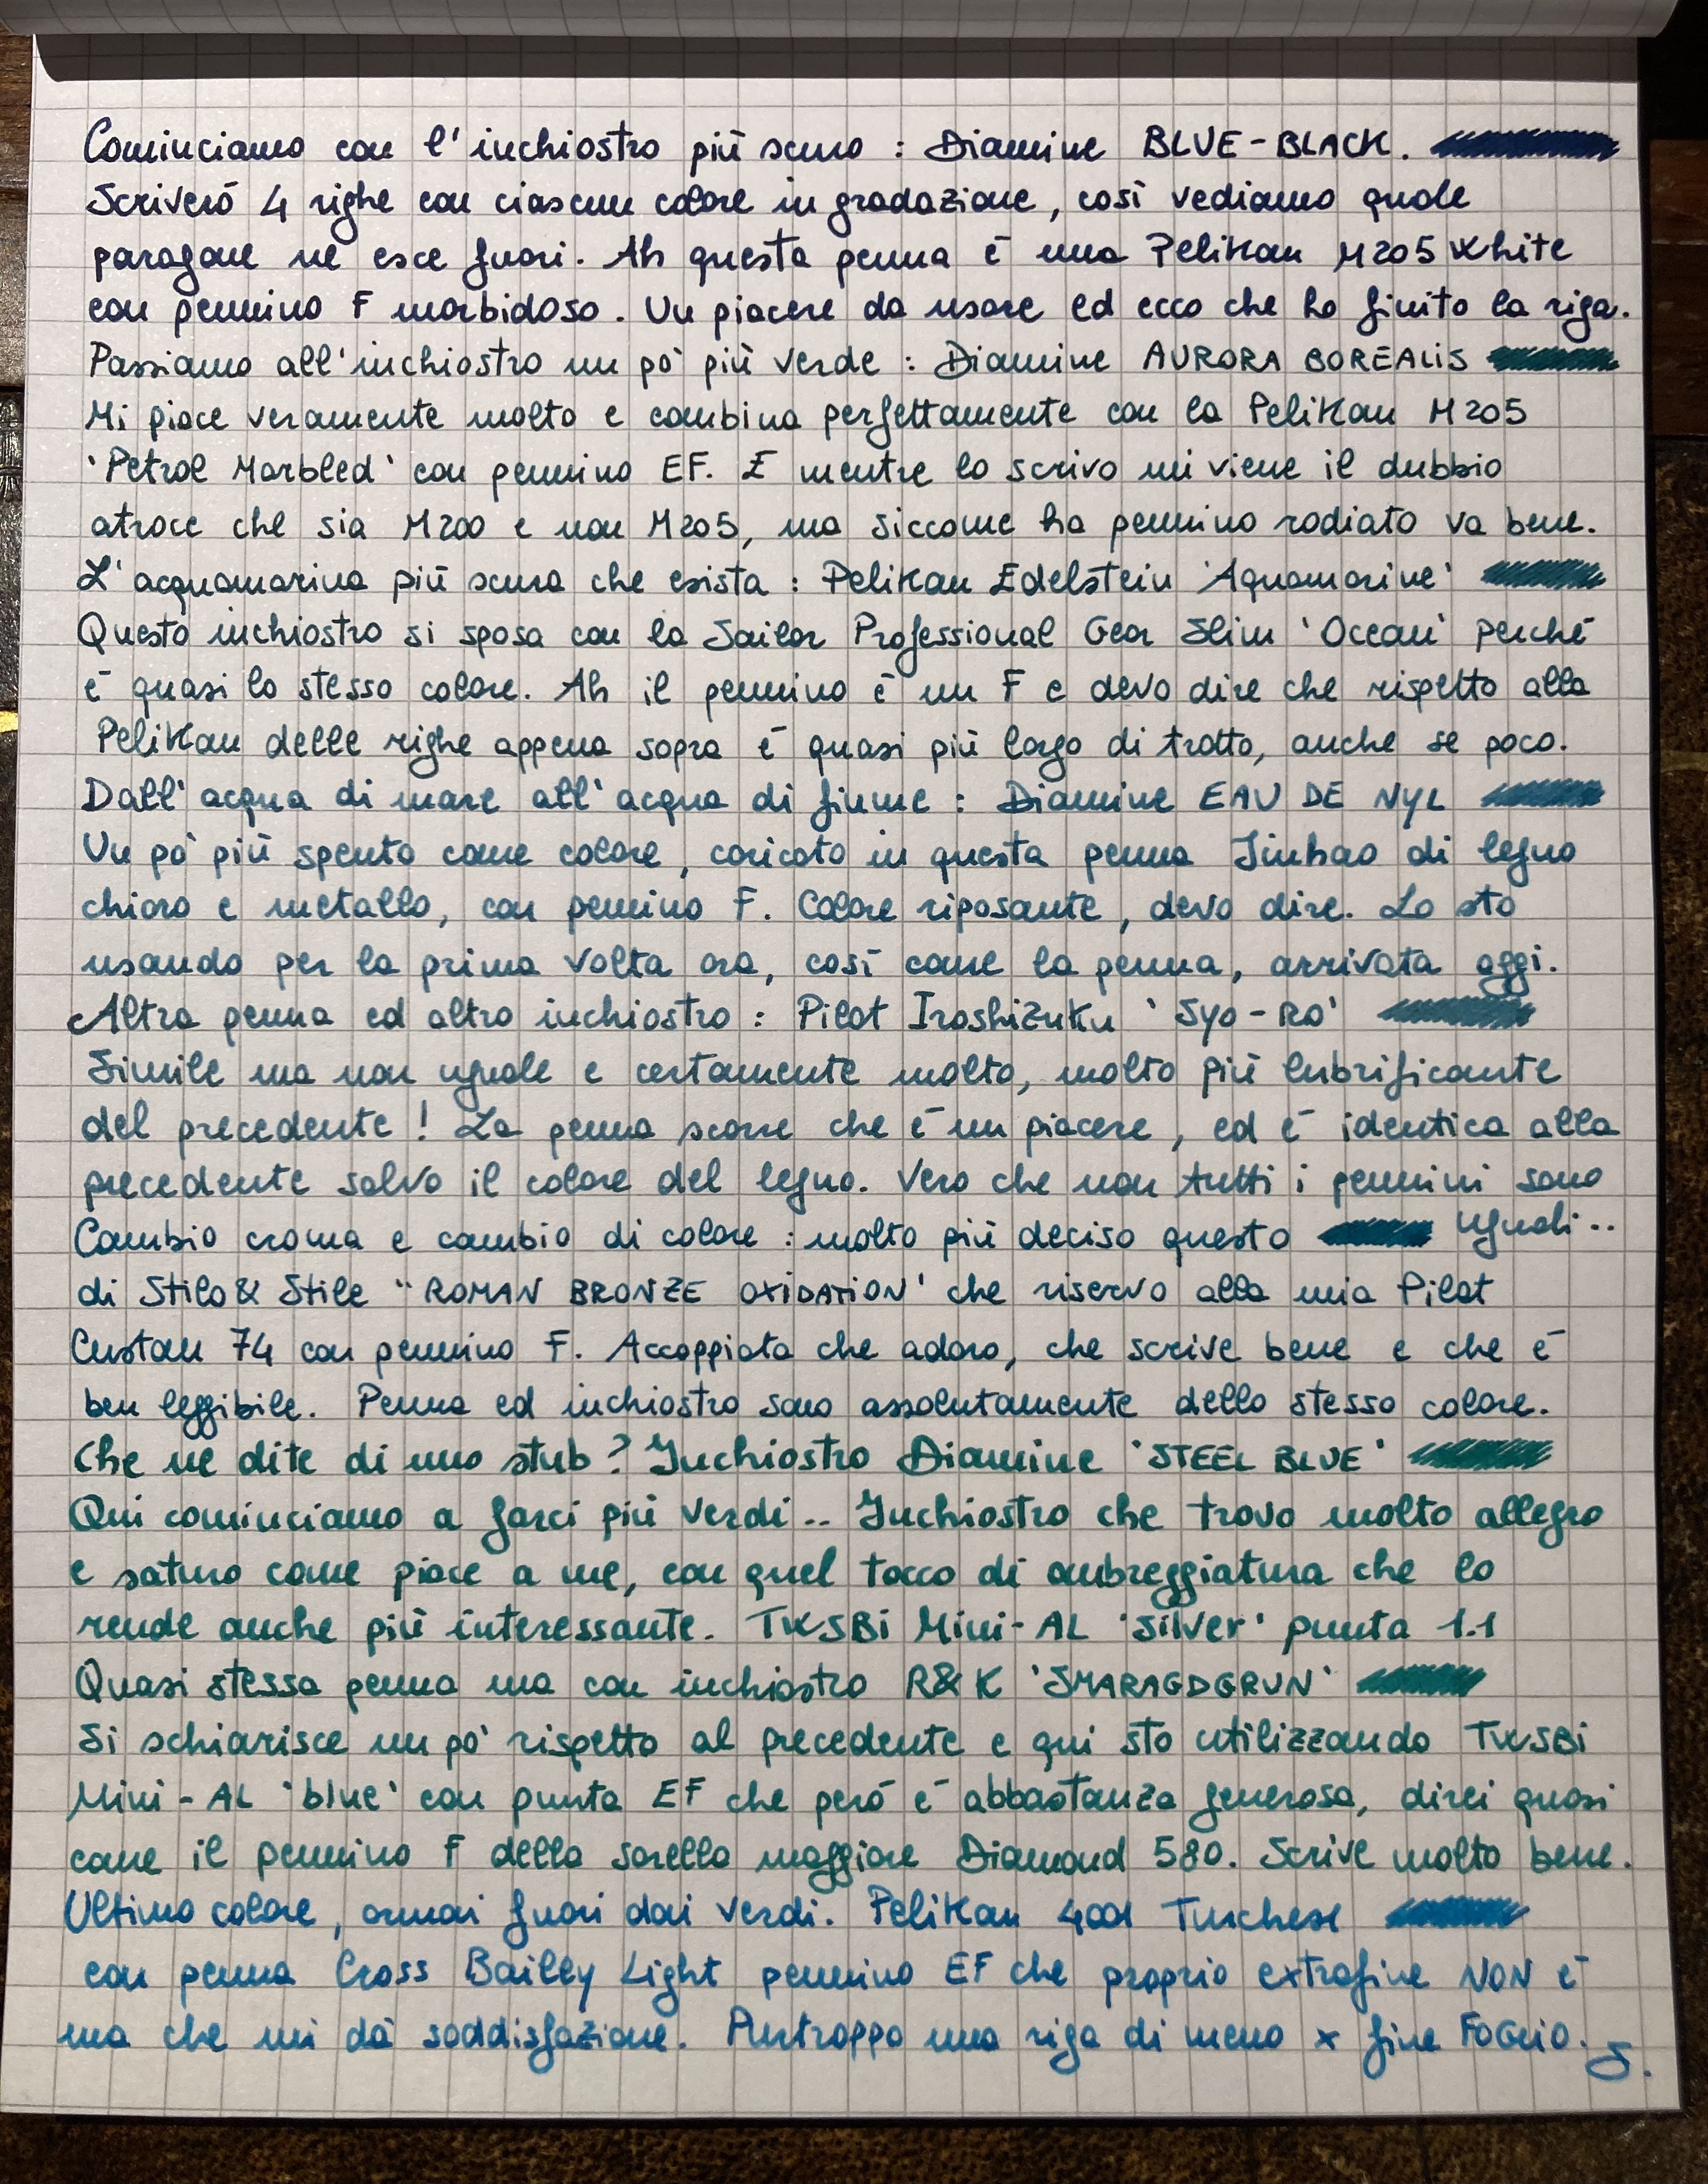 Cominciamo con l'inchiostro più scuro : Diamine BLUE-BLACK.
Scriverò 4 righe con ciascun colore in gradazione, così vediamo quale
paragone ne esce fuori. Ah questa penna è una Pelikan M205 White
con pennino F morbidoso. Un piacere da usare ed ecco che ho finito la riga.
Passiamo all'inchiostro un pò più verde : Diamine AURORA BOREALIS
Mi piace veramente molto e combina perfettamente con la Pelikan M205
'Petrol Marbled' con pennino EF. E mentre lo scrivo mi viene il dubbio
atroce che sia M200 e non M205, ma siccome ha pennino rodiato va bene.
L'acquamarina più scura che esista : Pelikan Edelstein 'Aquamarine'
Questo inchiostro si sposa con la Sailor Professional Gear Slim 'Ocean' perché
è quasi lo stesso colore. Ah il pennino è un F e devo dire che rispetto alla
Pelikan delle righe appena sopra è quasi più largo di tratto, anche se poco.
Dall'acqua di mare all'acqua di fiume : Diamine EAU DE NYL
Un pò più spento come colore, caricato in questa penna Jinhao di legno
chiaro e metallo, con pennino F. Colore riposante, devo dire. Lo sto
usando per la prima volta ora, così come la penna, arrivata oggi.
Altra penna ed altro inchiostro : Pilot Iroshizuku 'Syo-Ro'
Simile ma non uguale e certamente molto, molto più lubrificante
del precedente ! La penna scorre che è un piacere, ed è identica alla
precedente salvo il colore del legno. Vero che non tutti i pennini sono
uguali..
Cambio croma e cambio di colore : molto più deciso questo
di Stilo & Stile "ROMAN BRONZE OXIDATION' che riservo alla mia Pilot
Custom 74 con pennino F. Accoppiata che adoro, che scrive bene e che è
ben leggibile. Penna ed inchiostro sono assolutamente dello stesso colore.
Che ne dite di uno stub ? Inchiostro Diamine 'STEEL BLUE'
Qui cominciamo a farci più verdi.. Inchiostro che trovo molto allegro
e saturo come piace a me, con quel tocco di ombreggiatura che lo
rende anche più interessante. TWSBi Mini-AL 'Silver' punta 1.1
Quasi stessa penna ma con inchiostro R&K 'SMARAGDGRUN'
Si schiarisce un pò rispetto al precedente e qui sto utilizzando TWSBi
Mini-AL 'blue' con punta EF che però è abbastanza generosa, direi quasi
come il pennino F della sorella maggiore Diamond 580. Scrive molto bene.
Ultimo colore, ormai fuori dai verdi. Pelikan 4001 Turchese
con penna Cross Bailey Light pennino EF che proprio extrafine NON è
ma che mi dà soddisfazione. Purtroppo una riga di meno x fine FOGLIO.